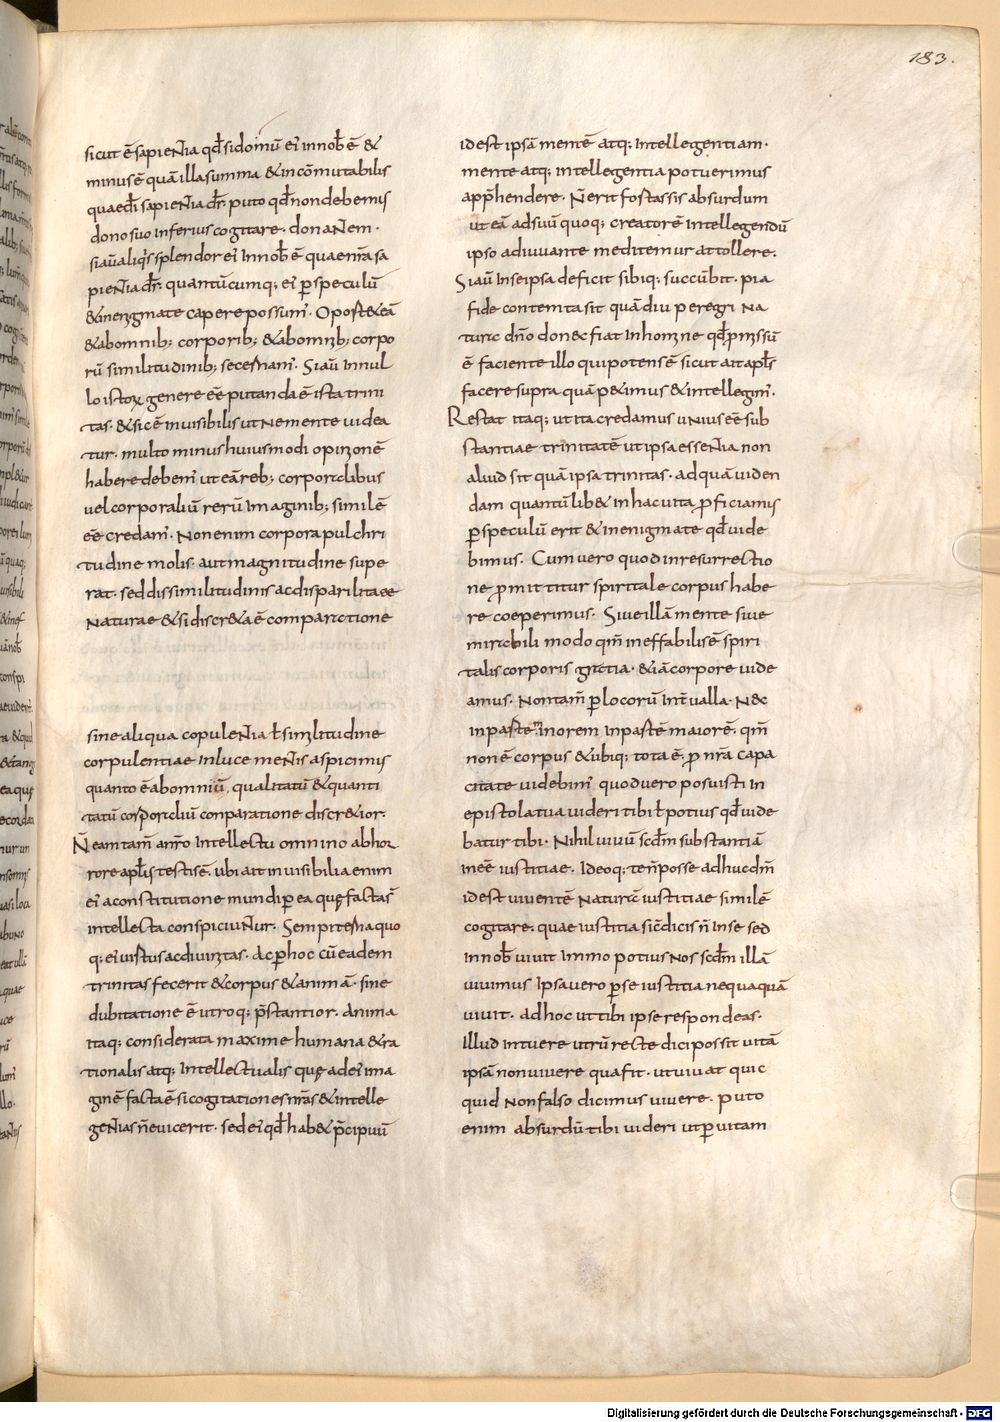 183.
sicut ē sapientia qd̄ si donū ei᾽ in nob̄ ē &
minus ē quā illa summa & incōmutabilis
quae d̄i sapientia dr̄. puto qd̄ non debem᾽
dono suo inferius cogitare. donantem.
si aū aliq᾽s splendor ei᾽ in nob̄ ē quae nr̄a sa
pientia dr̄. quantūcumq; ei᾽ p̱ speculū
& in enigmate capere possum᾽. Oportet eā
& ab omnib; corporib; & ab omnib; corpo
rū similitudinib; secernam᾽. Si aū in nul
lo istoꝝ genere eē putanda ē ista trini
tas. & sic ē inuisibilis ut nemente uidea
tur. multo minus huiusmodi opinionē
habere debem᾽ ut eā reb; corporalibus
uel corporaliū rerū imaginib; similē
eē credam᾽. Non enim corpora pulchri
tudine molis. aut magnitudine supe
rat. sed dissimilitudinis ac disparilitate
naturae & si discreta ē comparatione
sine aliqua copulentia ł similitudine
corpulentiae in luce mentis aspicimus
quanto ē ab omniū, qualitatū & quanti
tatū corporaliū conparatione discretior.
N̄ eam tam᾽ a nr̄o intellectu omnino abhor
rore apl̄s testis ē. ubi ait inuisibilia enim
ei᾽ a constitutione mundi p̱ ea quę facta s̄
intellecta conspiciuntur. Sempiterna quo
q; ei᾽ uirtus ac diuinitas. Ac p̱ hoc cū eadem
trinitas fecerit & corpus & animā. sine
dubitatione ē utroq; p̄stantior. Anima
itaq; considerata maxime humana & ra
tionalis atq; intellectualis quę ad ei᾽ ima
ginē facta ē si cogitationes nr̄as & intelle
gentias n̄ euicerit. sed ei᾽ qd̄ hab& p̄cipuū
id est ipsā mentē atq; intellegentiam.
mente atq; intellegentia potuerimus
app̄hendere. N̄ erit fostassis absurdum
ut eā ad suū quoq; creatorē intellegendū
ipso adiuuante meditemur attollere.
Si aū in se ipsa deficit sibiq; succūbit. pia
fide contenta sit quādiu peregrina
tur a dn̄o donec fiat in homine qd̄ p̱missū
ē faciente illo qui potens ē sicut ait apl̄s
facere supra quā petimus & intellegim᾽.
Restat itaq; ut ita credamus unius eē sub
stantiae trinitatē ut ipsa essentia non
aliud sit quā ipsa trinitas. ad quā uiden
dam quantū lib& in hac uita ꝓficiam᾽
p̱ speculū erit & in enigmate qd̄ uide
bimus. Cum uero quod in resurrectio
ne ꝓmittitur spiritale corpus habe
re coeperimus. Siue illā mente siue
mirabili modo qm̄ ineffabilis ē spiri
talis corporis gratia. &iā corpore uide
amus. Non tam᾽ p̱ locorū int̄ualla. Nec
in parte minorem in parte maiorē. qm̄
non ē corpus & ubiq; tota ē. ꝓ nr̄a capa
citate uidebim᾽ quod uero posuisti in
epistola tua uideri tibi ł potius qd̄ uide
batur tibi. Nihil uiuū scdm̄ substantiā
in eē iustitiae. Ideoq; te n̄ posse adhuc dm̄
id est uiuentē naturā iustitiae similē
cogitare. quae iustitia sic̄ dicis n̄ in se sed
in nob̄ uiuit immo potius nos scdm̄ illā
uiuimus ipsa uero p̱ se iustitia nequaquā
uiuit. ad hoc ut tibi ipse respondeas.
illud intuere utrū recte dici possit uitā
ipsā non uiuere qua fit. ut uiuat quic
quid non falso dicimus uiuere. puto
enim absurdū tibi uideri ut p̱ uitam
Digitalisierung gefördert durch die Deutsche Forschungsgemeinschaft - DFG